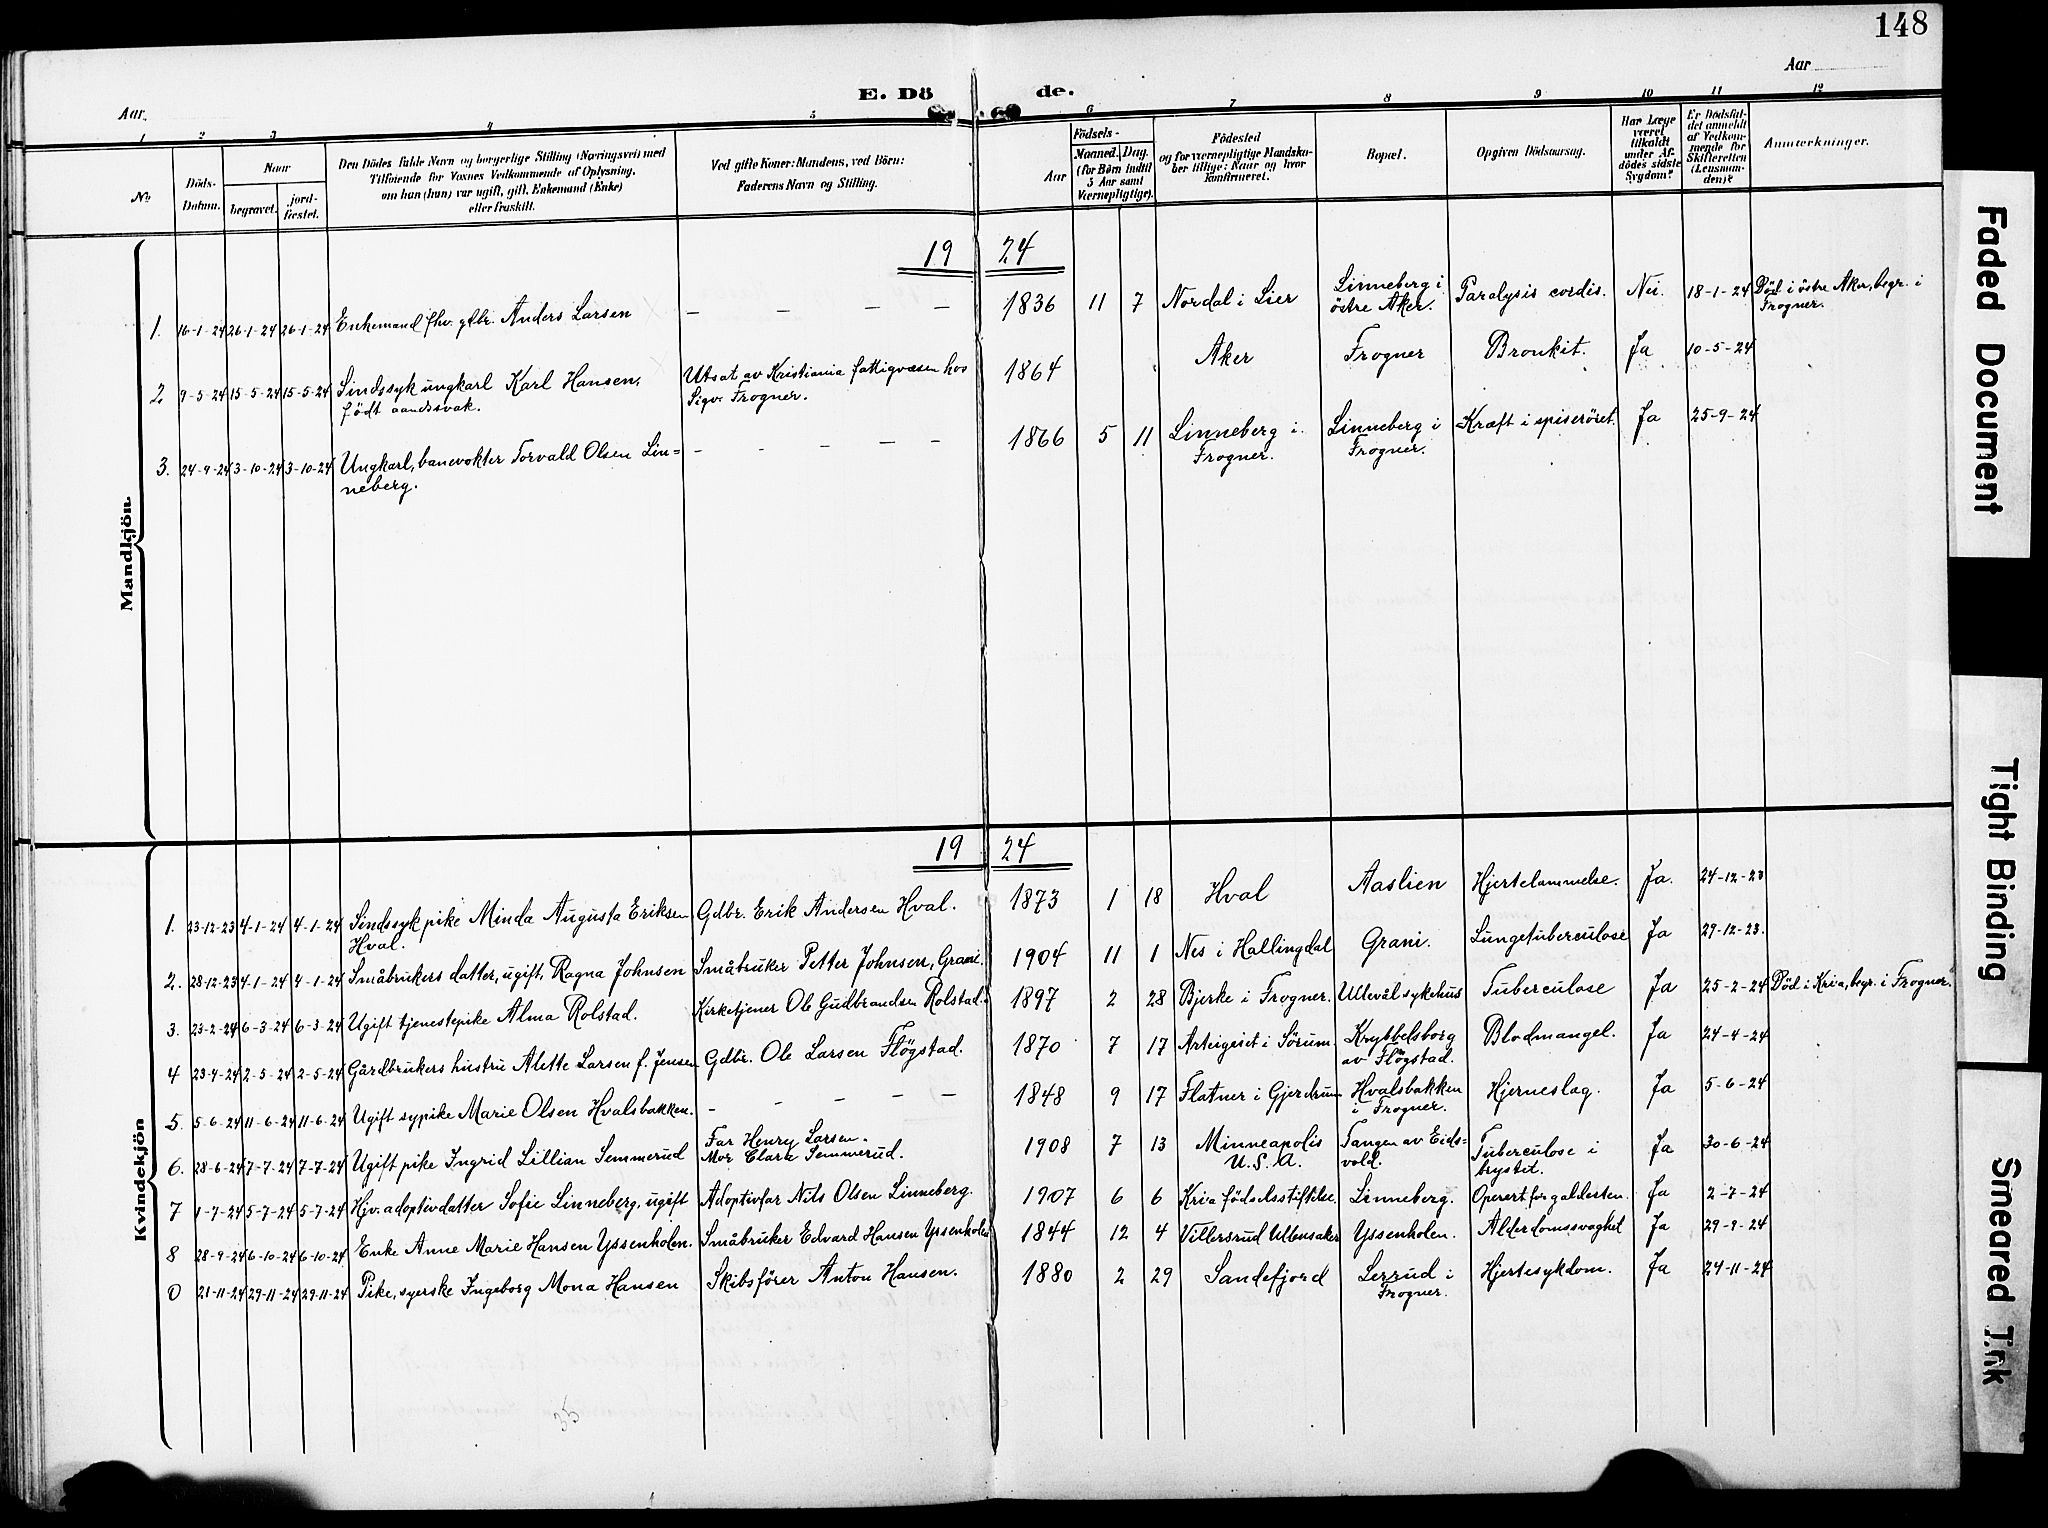 148
Aar
Aar.
E. Dö de.
1 2 3 4 5 6 7 8 9 10 11 12
No.
Döds-Datum.
Naar
begravet.
jord-fæstet.
Den Dödes fulde Navn og borgerlige Stilling (Næringsvei) med
Tilföiende for Voxnes Vedkommende af Oplysning,
om han (hun) var ugift, gift, Enkemand (Enke)
eller fraskilt.
Ved gifte Koner: Mandens, ved Börn:
Faderens Navn og Stilling.
Födsels-
Aar
Maaned. Dag.
(for Börn indtil
5 Aar samt
Værnepligtige).
Födested
og for værnepligtige Mandska-
ber tillige: Naar og hvor
konfirmeret.
Bopæl.
Opgiven Dödsaarsag.
Har Læge
været
tilkaldt
under Af-
dödes sidste
Sygdom?
Er Dödsfal-
det anmeldt
af Vedkom-
mende for
Skifteretten
(Lensman-
den)?
Anmærkninger.
Mandkjön.
19 24
1. 16-1-24 26-1-24 26-1-24 Enkemand fhv. gdbr. Anders Larsen — — — — 1836 11 7 Nordal i Lier Linneberg i östre Aker. Paralysis cordis. Nei. 18-1-24 Död i östre Aker, begr. i Frogner.
2 9-5-24 15-5-24 15-5-24 Sindssyk ungkarl Karl Hansen, födt aandssvak. Utsat av Kristiania fattigvæsen hos Sigv. Frogner. 1864 Aker Frogner Bronkit. Ja 10-5-24
3. 24-9-24 3-10-24 3-10-24 Ungkarl, banevokter Torvald Olsen Lin=neberg. - - - - - 1866 5 11 Linneberg i Frogner. Linneberg i Frogner. Kræft i spiseröret. Ja 25-9-24
Kvindekjön
19 24
1. 23-12-23 4-1-24 4-1-24 Sindssyk pike Minda Augusta Eriksen Hval. Gdbr. Erik Andersen Hval. 1873 1 18 Hval Aaslien Hjertelammelse. Ja. 24-12-23
2. 28-12-23 4-1-24 4-1-24 Småbrukers datter, ugift, Ragna Johnsen Småbruker Petter Johnsen, Grani. 1904 11 1 Nes i Hallingdal Grani. Lungetuberculose Ja 29-12-23.
3. 23-2-24 6-3-24 6-3-24 Ugift tjenestepike Alma Rolstad. Kirketjener Ole Gudbrandsen Rolstad. 1897 2 28 Bjerke i Frogner. Ullevål sykehus Tuberculose Ja 25-2-24 Död i Kria, begr. i Frogner.
4 23-4-24 2-5-24 2-5-24 Gårdbrukers hustru Alette Larsen f. Jensen Gdbr. Ole Larsen Flögstad. 1870 7 17 i Sörum. Krybbelsborg av Flögstad. Blodmangel. Ja 24-4-24
5. 5-6-24 11-6-24 11-6-24 Ugift sypike Marie Olsen Hvalsbakken. - - - - - 1848 9 17 Flatner i Gjerdrum Hvalsbakken i Frogner. Hjerneslag. Ja 5-6-24
6. 28-6-24 7-7-24 7-7-24 Ugift pike Ingrid Lillian Semmerud Far Henry Larsen. Mor Clara Semmerud. 1908 7 13 Minneapolis U.S.A. Tangen av Eids=vold. Tuberculose i brystet. Ja 30-6-24
7 1-7-24 5-7-24 5-7-24 Hjv. adoptivdatter Sofie Linneberg, ugift Adoptivfar Nils Olsen Linneberg. 1907 6 6 Kria födselsstiftelse. Linneberg. Operert for galdesten. Ja 2-7-24
8 28-9-24 6-10-24 6-10-24 Enke Anne Marie Hansen Yssenholen. Småbruker Edvard Hansen Yssenholen 1844 12 4 Villersrud Ullensaker Yssenholen. Alderdomssvaghet Ja 29-9-24
21-11-24 29-11-24 29-11-24 Pike, syerske Ingeborg Mona Hansen Skibsförer Anton Hansen. 1880 2 29 Sandefjord Lerrud i Frogner. Hjertesykdom. Ja 24-11-24
35
Faded Document
Tight Binding
Smeared Ink